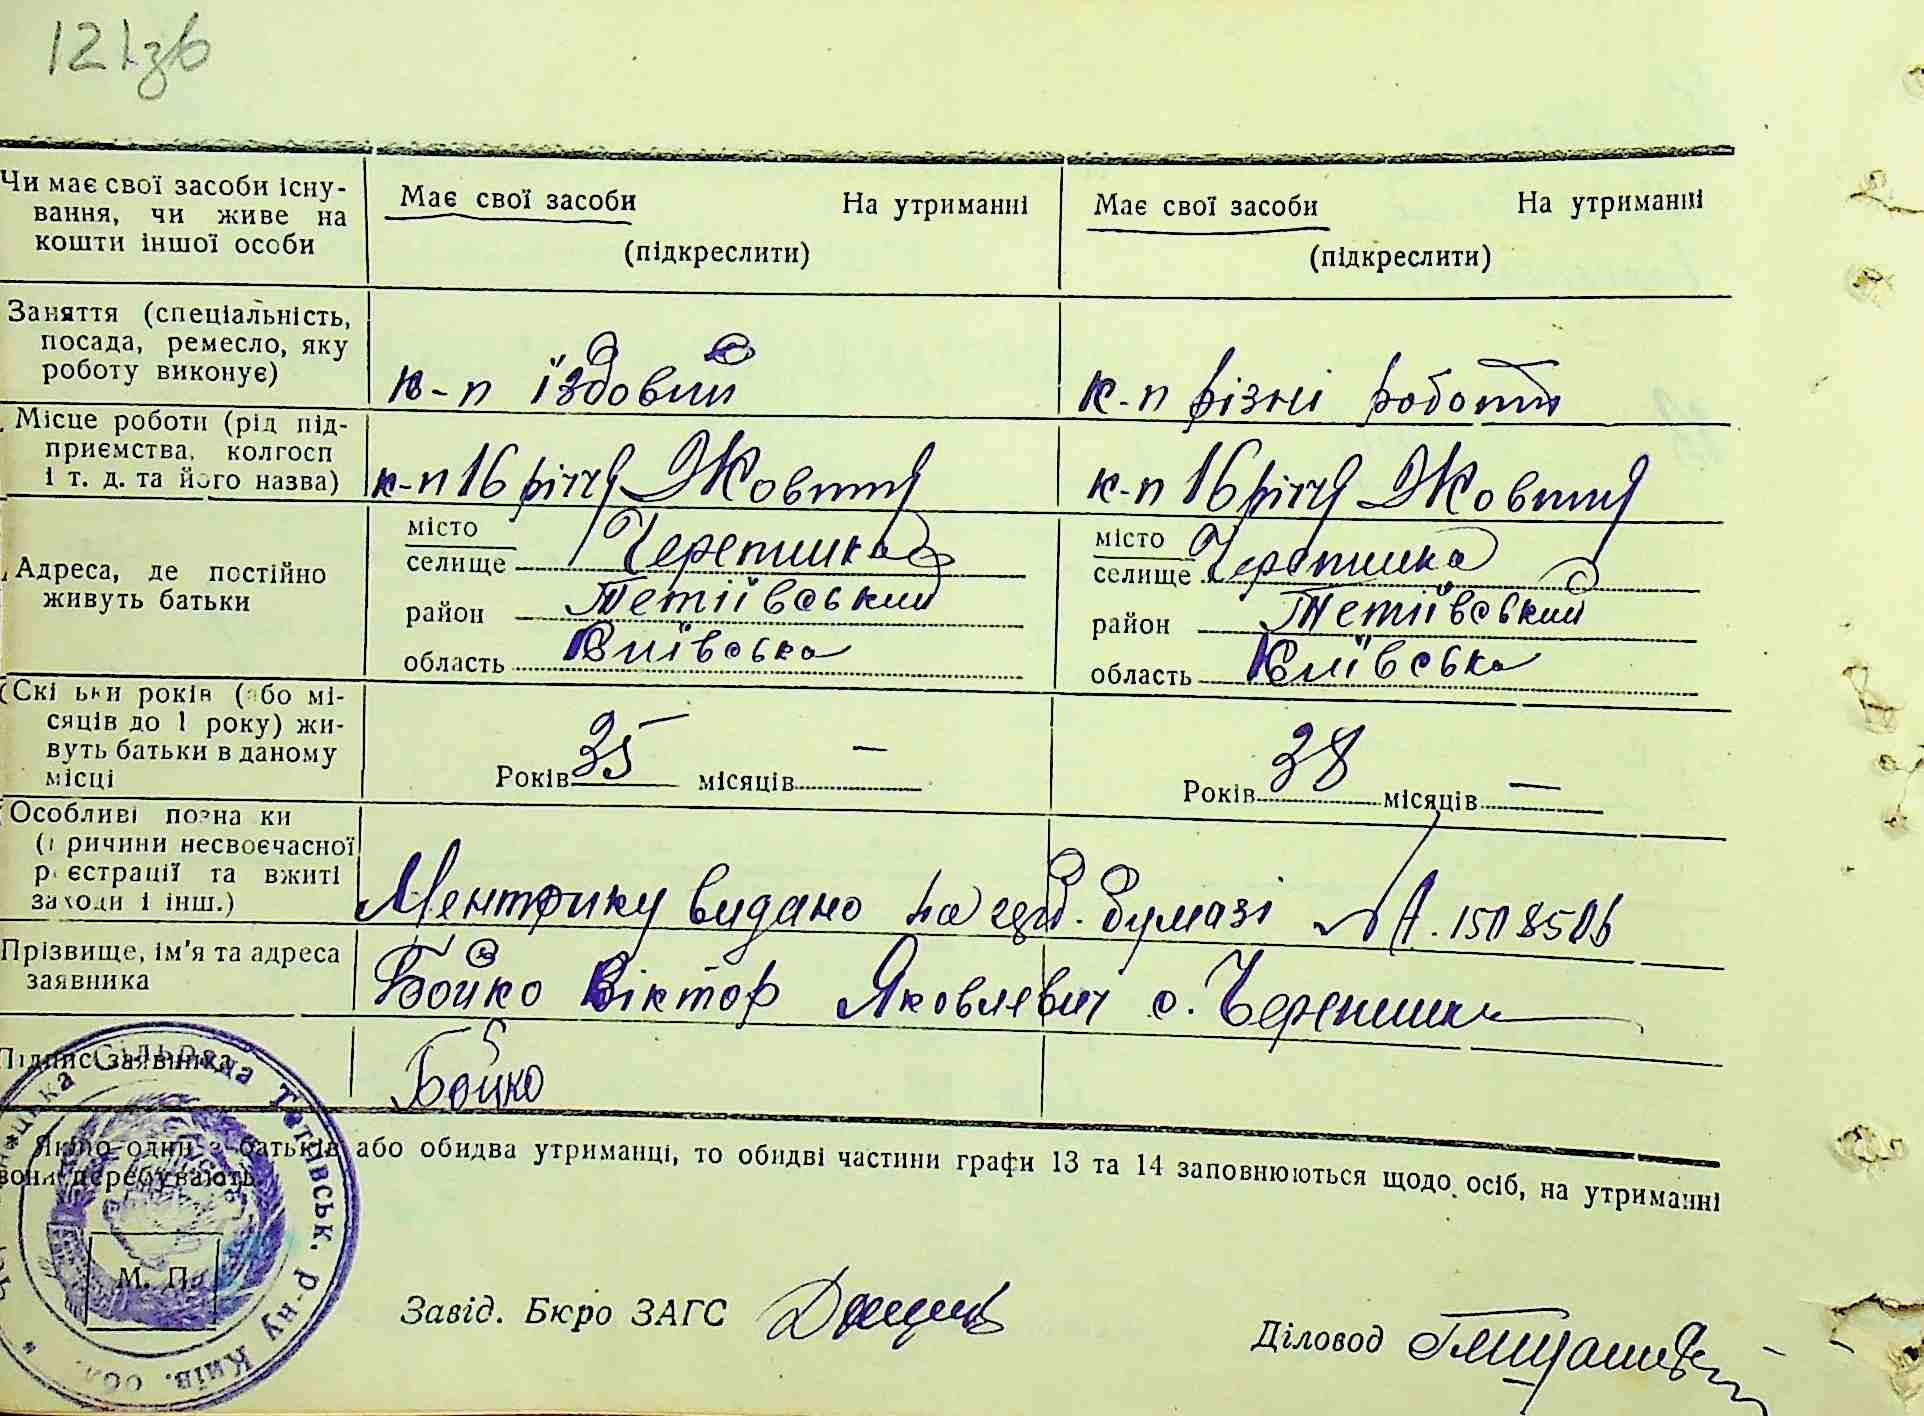 121зв
Чи має свої засоби існу-
вання, чи живе на
кошти іншої особи
Має свої засоби На утриманні
(підкреслити)
Має свої засоби На утриманні
(підкреслити)
Заняття (спеціальність,
посада, ремесло, яку
роботу виконує)
к-п їздовий
к-п різні роботи
Місце роботи (рід під-
приємства, колгосп
і т. д. та його назва)
к-п 16 річчя Жовтня
к-п 16 річчя Жовтня
Адреса, де постійно
живуть батьки
місто
селище Черепинка
район Тетіївський
область Київська
місто
селище Черепинка
район Тетіївський
область Київська
Скільки років (або мі-
сяців до 1 року) жи-
вуть батьки в даному
місці
Років 35 місяців —
Років 38 місяців —
Особливі позначки
(причини несвоєчасної
реєстрації та вжиті
заходи і інш.)
видано на бумазі
Прізвище, ім'я та адреса
заявника
Бойко Віктор Яковлевич с. Черепинка
Підпис заявника
Бойко
Якщо один з батьків або обидва утриманці, то обидві частини графи 13 та 14 заповнюються щодо осіб, на утриманні
вони перебувають.
Сільрада Тетіївськ. р-ну Київ. обл. *
М. П.
Завід. Бюро ЗАГС
Діловод